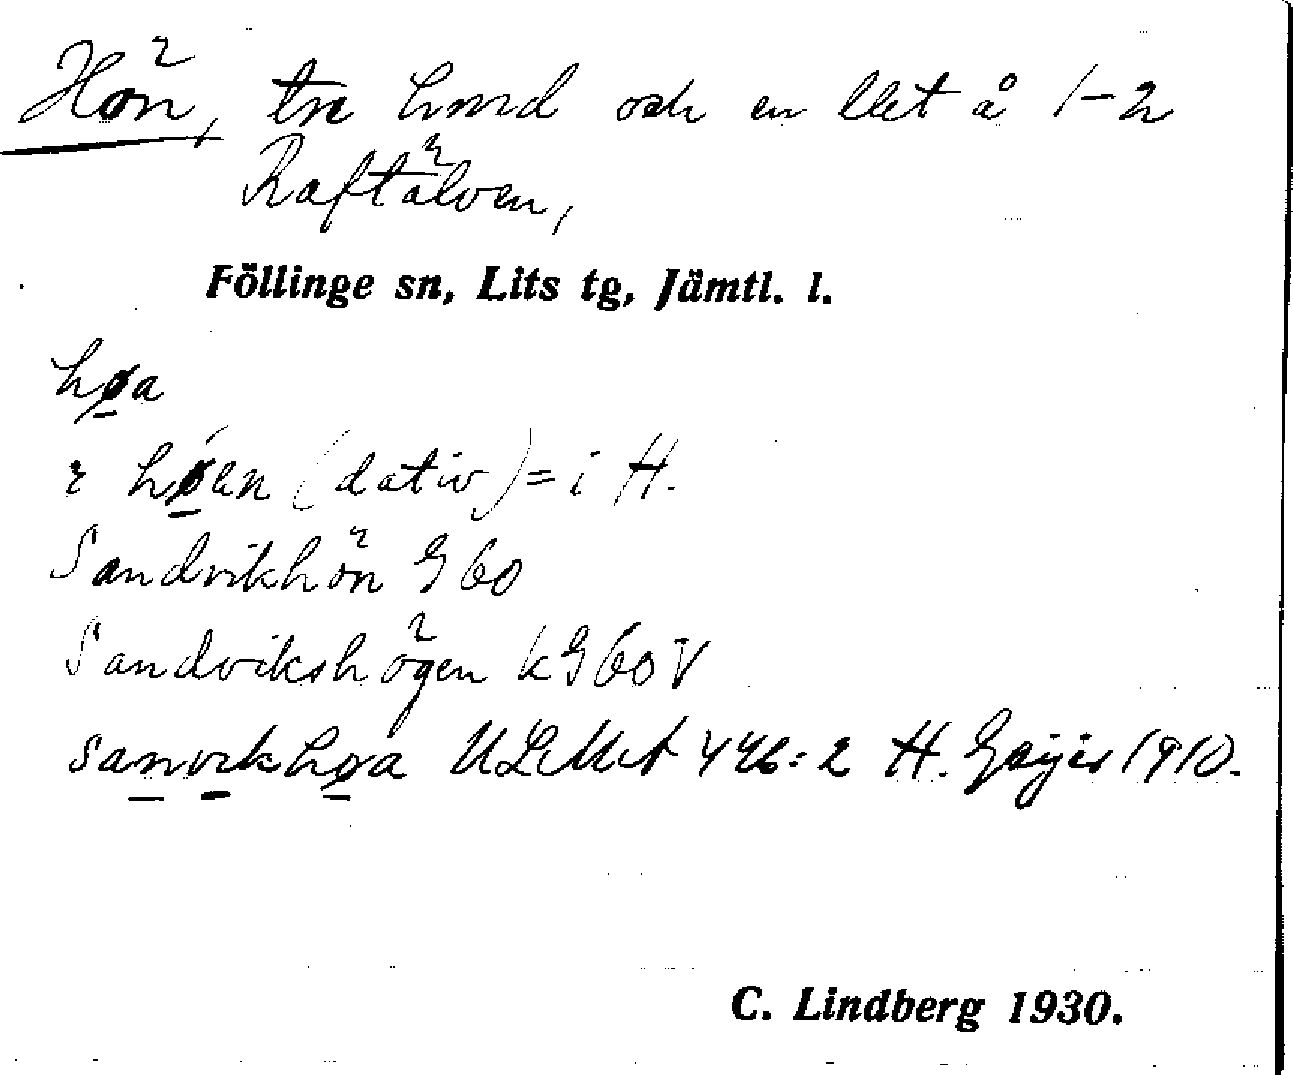 Hön, tre hmd och en llet å 1-2
Raftälven,
Föllinge sn, Lits tg, Jämtl. l.
høa
i høen (dativ) = i H.
Sandvikhön G 60
Sandvikshögen kG60V
sanvikhøa ULMA 446:2 H. Geijer 1910.
C. Lindberg 1930.